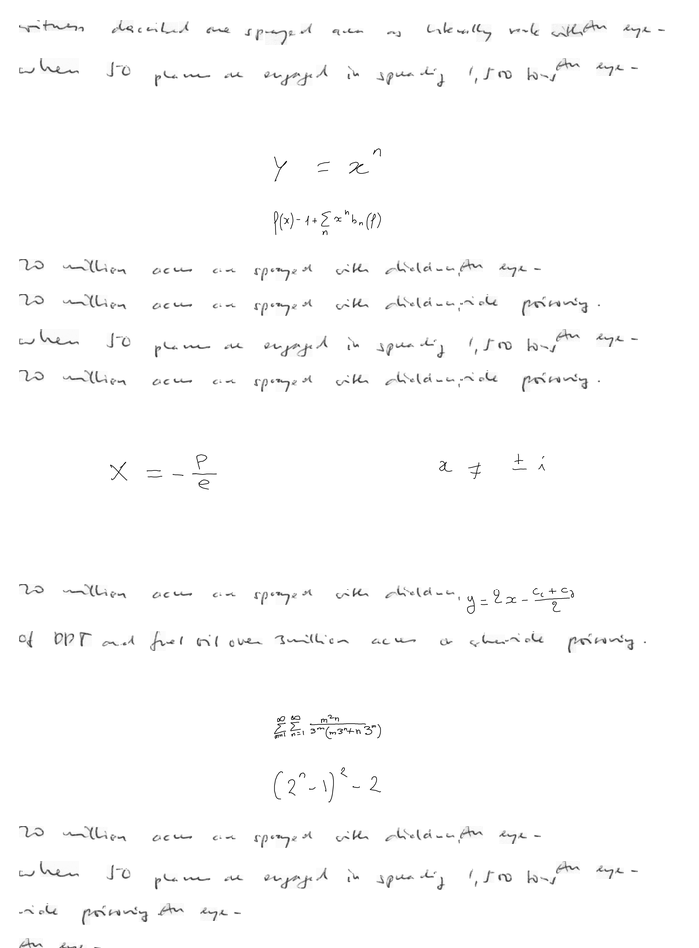 witness described one sprayed area as literally reek with An eye-
when 50 planes are engaged in spreading 1,500 tons An eye-
Y = x^n
f(x) - 1 + ∑_n x^n b_n(f)
20 million acres are sprayed with An eye-
20 million acres are sprayed with -ide poisoning.
when 50 planes are engaged in spreading 1,500 tons An eye-
20 million acres are sprayed with -ide poisoning.
X = - P/e x ≠ ± i
20 million acres are sprayed with y = 2x - (c_1 + c_2)/2
of DDT and fuel oil over 3 million acres poisoning.
∑_{m=1}^∞ ∑_{n=1}^∞ m^2 n / (3^m (m 3^n + n 3^m))
(2^n - 1)^2 - 2
20 million acres are sprayed with An eye-
when 50 planes are engaged in spreading 1,500 tons An eye-
-ide poisoning An eye-
An eye-